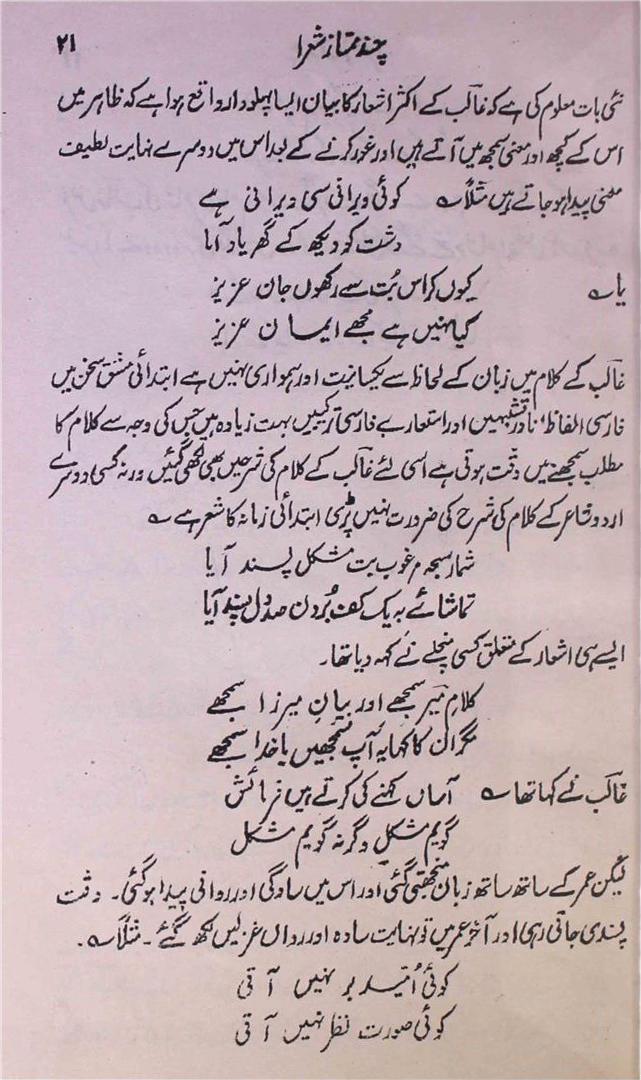 چند ممتاز شعرا ۲۱
نئی بات معلوم کی ہے کہ غالب کے اکثر اشعار کا بیان ایسا پہلو دار واقع ہوا ہے کہ ظاہر میں
اس کے کچھ اور معنی سمجھ میں آتے ہیں اور غور کرنے کے بعد اس میں دوسرے نہایت لطیف
معنی پیدا ہو جاتے ہیں مثلاً؎ کوئی ویرانی سی ویرانی ہے
دشت کو دیکھ کے گھر یاد آیا
یا؎ کیوں کر اس بُت سے رکھوں جان عزیز
کیا نہیں ہے مجھے ایمان عزیز
غالب کے کلام میں زبان کے لحاظ سے یکسانیت اور ہمواری نہیں ہے ابتدائی مشق سخن میں
فارسی الفاظ، نادر تشبیہیں اور استعارے فارسی ترکیبیں بہت زیادہ ہیں جس کی وجہ سے کلام کا
مطلب سمجھنے میں دقت ہوتی ہے اسی لئے غالب کے کلام کی شرحیں بھی لکھی گئیں ورنہ کسی دوسرے
اردو شاعر کے کلام کی شرح کی ضرورت نہیں پڑی ابتدائی زمانہ کا شعر ہے؎
شمار سبحہ مرغوب بت مشکل پسند آیا
تماشائے بہ یک کف بُردن صد دل پسند آیا
ایسے ہی اشعار کے متعلق کسی منچلے نے کہہ دیا تھا۔
کلامِ میر سمجھے اور بیانِ میرزا سمجھے
مگر ان کا کہا یہ آپ سمجھیں یا خدا سمجھے
غالب نے کہا تھا؎ آساں کہنے کی کرتے ہیں فرمائش
گویم مشکل وگرنہ گویم مشکل
لیکن عمر کے ساتھ ساتھ زبان منجھتی گئی اور اس میں سادگی اور روانی پیدا ہو گئی۔ دقت
پسندی جاتی رہی اور آخر عمر میں تو نہایت سادہ اور رواں غزلیں لکھ گئے۔ مثلاً؎۔
کوئی اُمّید بر نہیں آتی
کوئی صورت نظر نہیں آتی